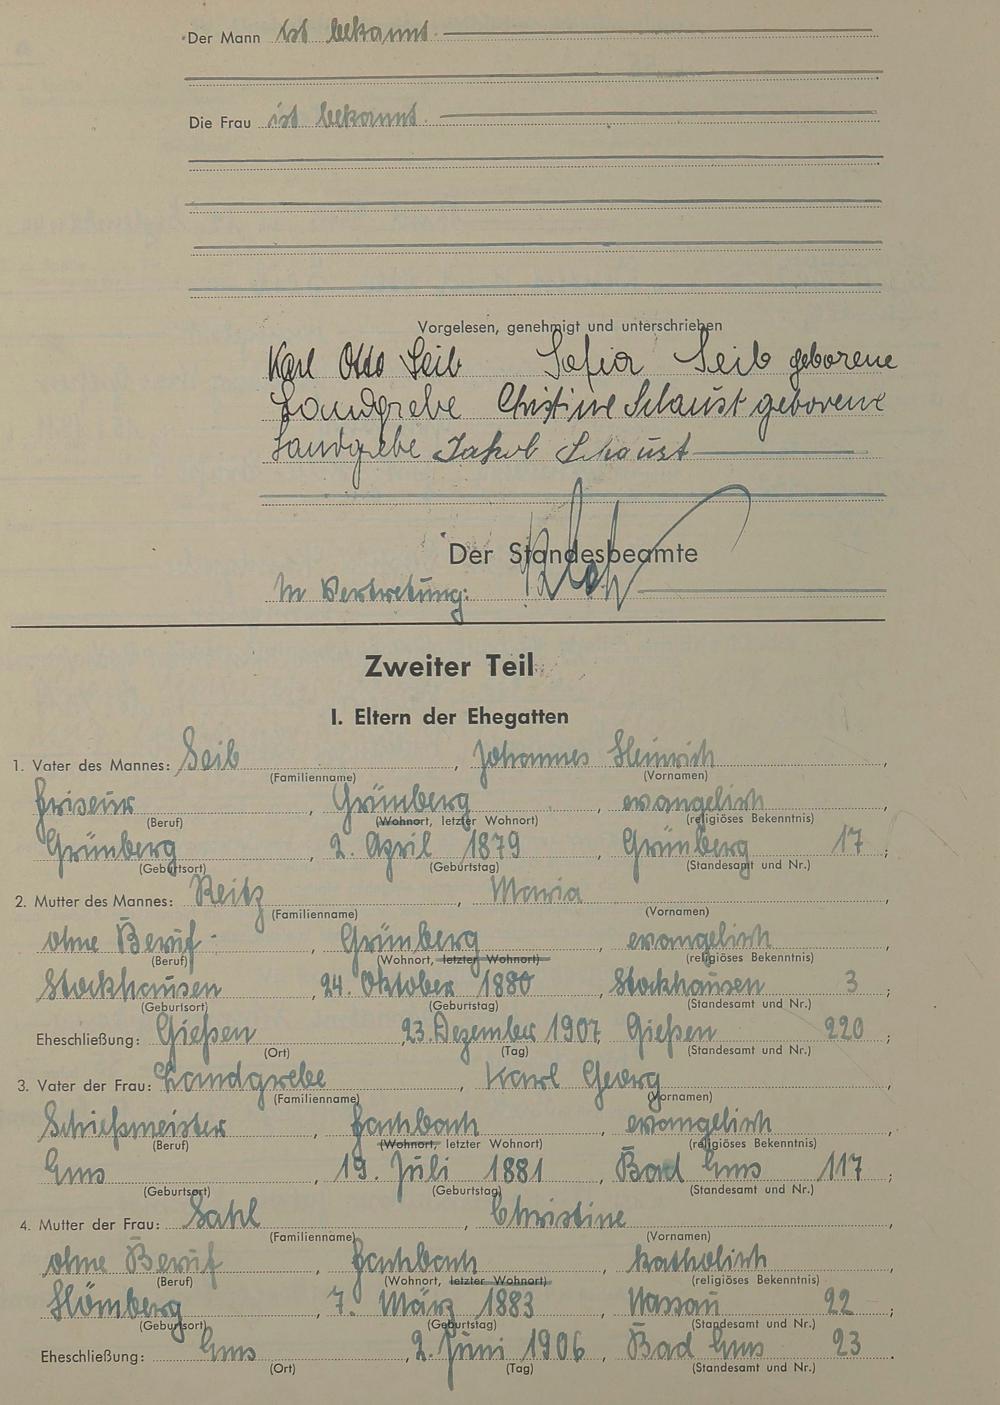 Der Mann ist bekannt.
Die Frau ist bekannt.
Vorgelesen, genehmigt und unterschrieben
Karl Otto Seib Sofia Seib geborene
Landgrebe Christine Schaust geborene
Landgrebe Jakob Schaust
Der Standesbeamte
In Vertretung:
Zweiter Teil
I. Eltern der Ehegatten
1. Vater des Mannes: Seib, Johannes Heinrich,
(Familienname) (Vornamen)
Friseur, Grünberg, evangelisch,
(Beruf) (Wohnort, letzter Wohnort) (religiöses Bekenntnis)
Grünberg, 2. April 1879, Grünberg 17;
(Geburtsort) (Geburtstag) (Standesamt und Nr.)
2. Mutter des Mannes: Reitz, Maria,
(Familienname) (Vornamen)
ohne Beruf, Grünberg, evangelisch,
(Beruf) (Wohnort, letzter Wohnort) (religiöses Bekenntnis)
Stockhausen, 24. Oktober 1880, Stockhausen 3;
(Geburtsort) (Geburtstag) (Standesamt und Nr.)
Eheschließung: Gießen, 23. Dezember 1907, Gießen 220;
(Ort) (Tag) (Standesamt und Nr.)
3. Vater der Frau: Landgrebe, Karl Georg,
(Familienname) (Vornamen)
Schießmeister, Fachbach, evangelisch,
(Beruf) (Wohnort, letzter Wohnort) (religiöses Bekenntnis)
Ems, 19. Juli 1881, Bad Ems 117;
(Geburtsort) (Geburtstag) (Standesamt und Nr.)
4. Mutter der Frau: Sahl, Christine,
(Familienname) (Vornamen)
ohne Beruf, Fachbach, katholisch,
(Beruf) (Wohnort, letzter Wohnort) (religiöses Bekenntnis)
Hömberg, 7. März 1883, Nassau 22;
(Geburtsort) (Geburtstag) (Standesamt und Nr.)
Eheschließung: Ems, 2. Juni 1906, Bad Ems 23.
(Ort) (Tag) (Standesamt und Nr.)